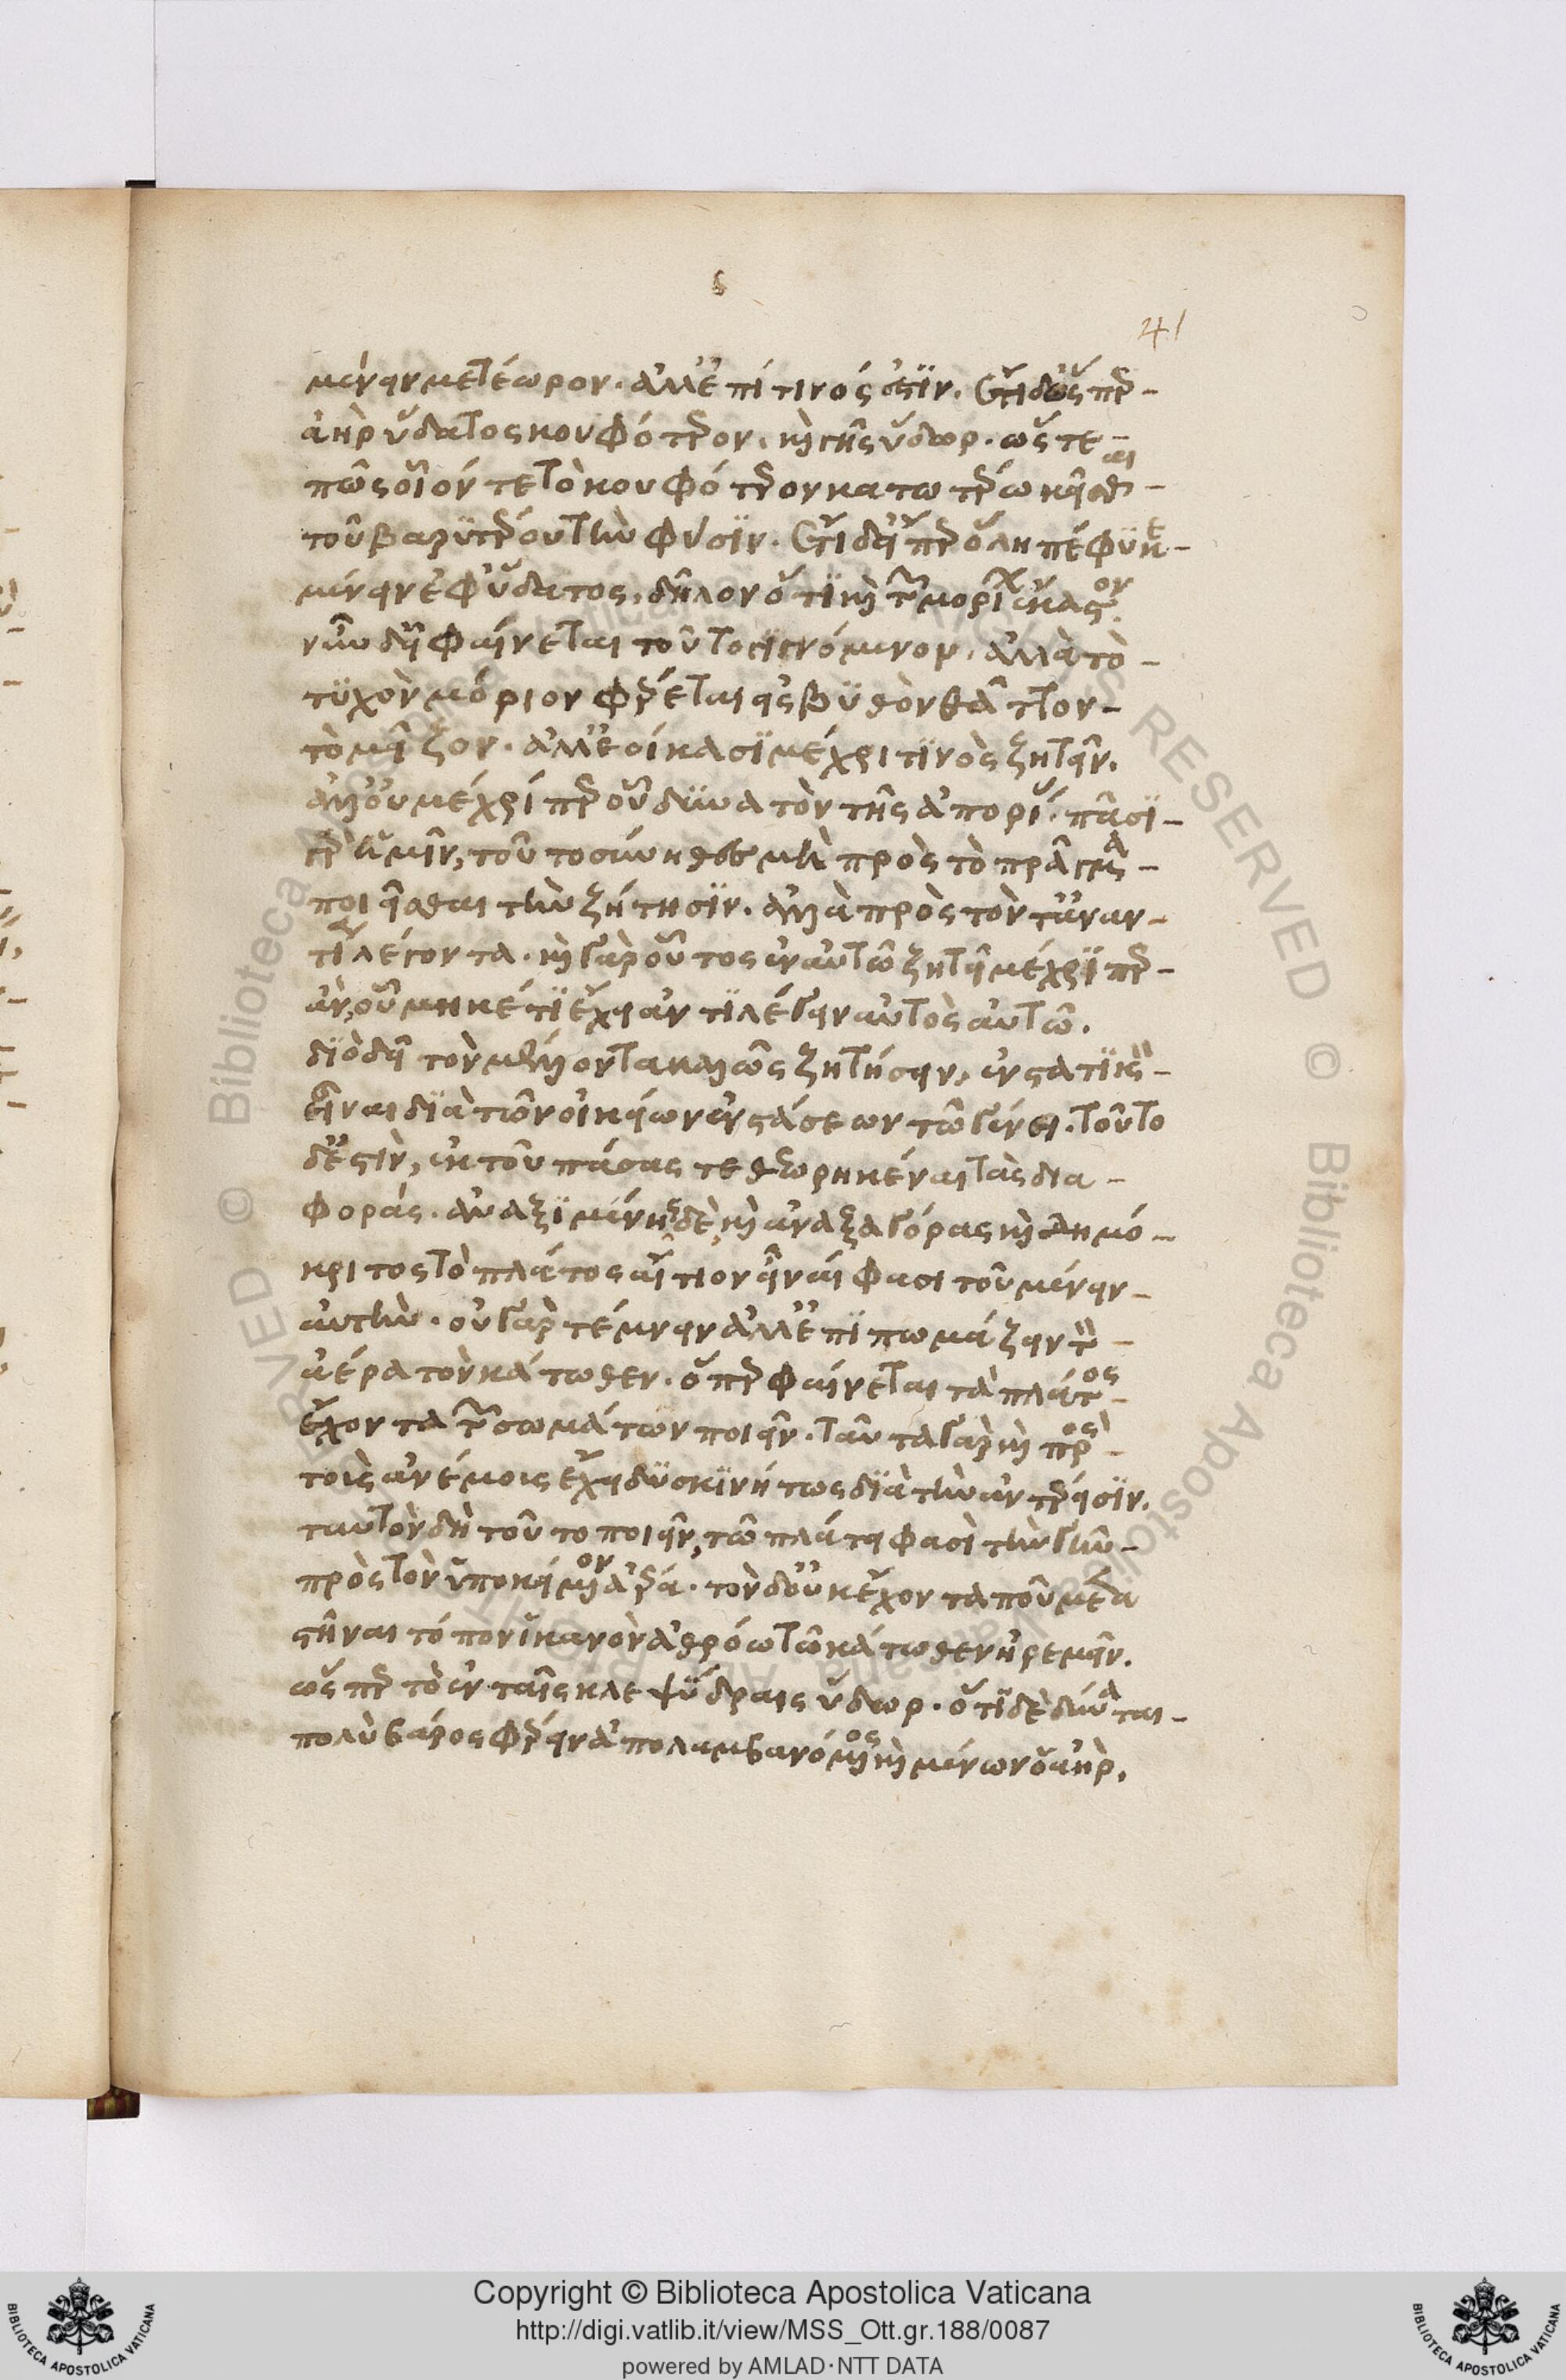 μένειν μετέωρον. ἀλλ' ἐπί τινός ἐστϊν. ἔτι δ' ὥσπερ -
ἀὴρ ὕδατος κουφότερον, καὶ γῆς ὕδωρ. ὥστε -
πῶς οἷόν τε τὸ κουφότερον κατωτέρω κεῖσθαι -
τοῦ βαρϋτέρου τὴν φύσϊν. ἔτι δ' εἴπερ ὅλη πέφϋκε -
μένειν ἐφ' ὕδατος, δῆλον ὅτϊ καὶ τῶν μορίων ἕκαστον.
νῦν δὴ φαίνεται τοῦτο γιγνόμενον, ἀλλὰ τὸ -
τϋχὸν μόριον φέρεται εἰς βϋθὸν θᾶττον -
τὸ μεῖζον. ἀλλ' ἐοίκασϊ μέχρι τϊνὸς ζητεῖν,
ἀλλ' οὐ μέχρί περ οὗ δυνατὸν τῆς ἀπορίας. πᾶσϊ -
γὰρ ἡμῖν, τοῦτο σύνηθες μὴ πρὸς τὸ πρᾶγμα -
ποιεῖσθαι τὴν ζήτησϊν. ἀλλὰ πρὸς τὸν τἀναν -
τία λέγοντα. καὶ γὰρ οὗτος ἐν αὑτῷ ζητεῖ μέχρϊ περ -
ἂν, οὗ μηκέτϊ ἔχει ἀντϊλέγειν αὐτὸς αὑτῷ.
δϊὸ δεῖ τὸν μέλλοντα καλῶς ζητήσειν, ἐνστατϊκὸν -
εἶναι δϊὰ τῶν οἰκείων ἐνστάσεων τῷ γένει. τοῦτο
δ' ἔστιν, ἐκ τοῦ πάσας τεθεωρηκέναι τὰς δια -
φοράς. ἀναξϊμένης δὲ, καὶ ἀναξαγόρας καὶ δημό -
κριτος τὸ πλάτος αἴτιον εἶναί φασι τοῦ μένειν -
αὐτὴν. οὐ γὰρ τέμνειν ἀλλ' ἐπϊπωμάζειν τὸν -
ἀέρα τὸν κάτωθεν. ὅπερ φαίνεται τὰ πλάτος -
ἔχοντα τῶν σωμάτων ποιεῖν. ταῦτα γὰρ καὶ πρὸς -
τοὺς ἀνέμους ἔχει δϋσκϊνήτως δϊὰ τὴν ἀντέρεισϊν.
ταυτὸν δὴ τοῦτο ποιεῖν, τῷ πλάτει φασὶ τὴν γῆν -
πρὸς τὸν ὑποκείμενον ἀέρα. τὸν δ' οὐκ ἔχοντα ποῦ μετα
στῆναι τόπον ἱκανὸν ἀθρόῳ τῷ κάτωθεν ἠρεμεῖν.
ὥσπερ τὸ ἐν ταῖς κλεψΰδραις ὕδωρ. ὅτϊ δὲ δύναται -
πολὺ βάρος φέρειν ἀπολαμβανόμενος καὶ μένων ὁ ἀὴρ,